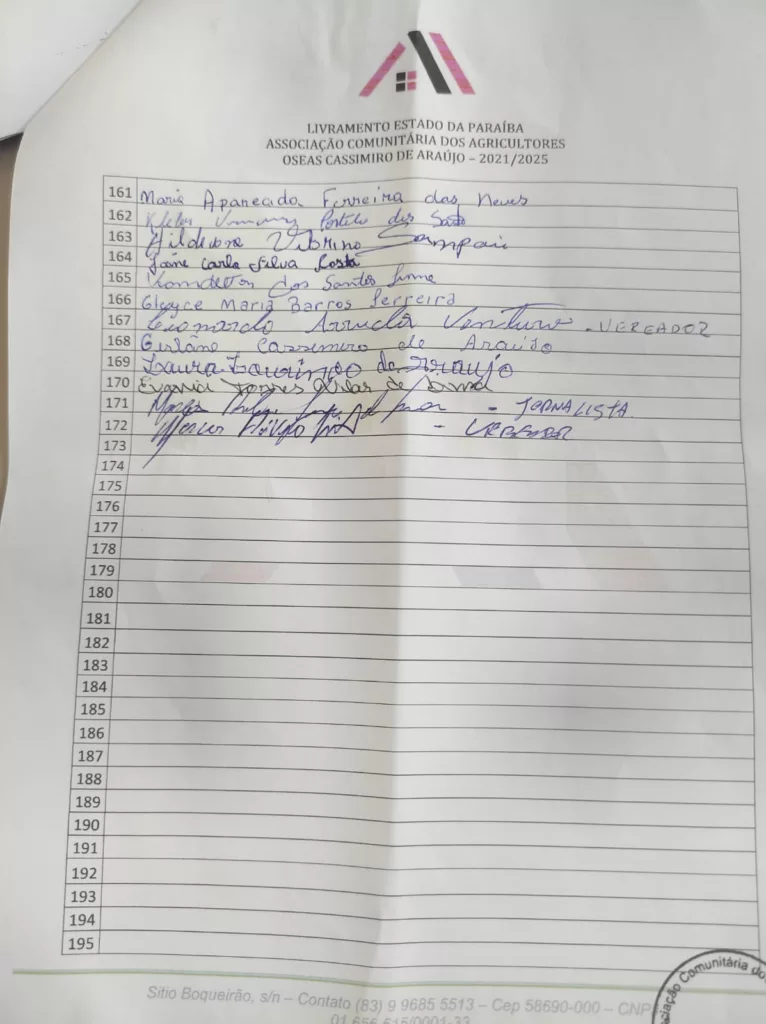 LIVRAMENTO ESTADO DA PARAÍBA
ASSOCIAÇÃO COMUNITÁRIA DOS AGRICULTORES
OSEAS CASSIMIRO DE ARAÚJO – 2021/2025
161 Maria Aparecida Ferreira das Neves
162 dos
163 Sampaio
164 Carla Silva Costa
165 dos Santos
166 Gleyce Maria Barros Ferreira
167 Leonardo Arruda Ventura - VEREADOR
168 Girlâne Cassimiro de Araújo
169 Laura Laurindo de Araújo
170 de
171 - JORNALISTA
172 - VEREADOR
173
174
175
176
177
178
179
180
181
182
183
184
185
186
187
188
189
190
191
192
193
194
195
Sítio Boqueirão, s/n – Contato (83) 9 9685 5513 – Cep 58690-000 – CNP
01.656.615/0001-33
Comunitária do